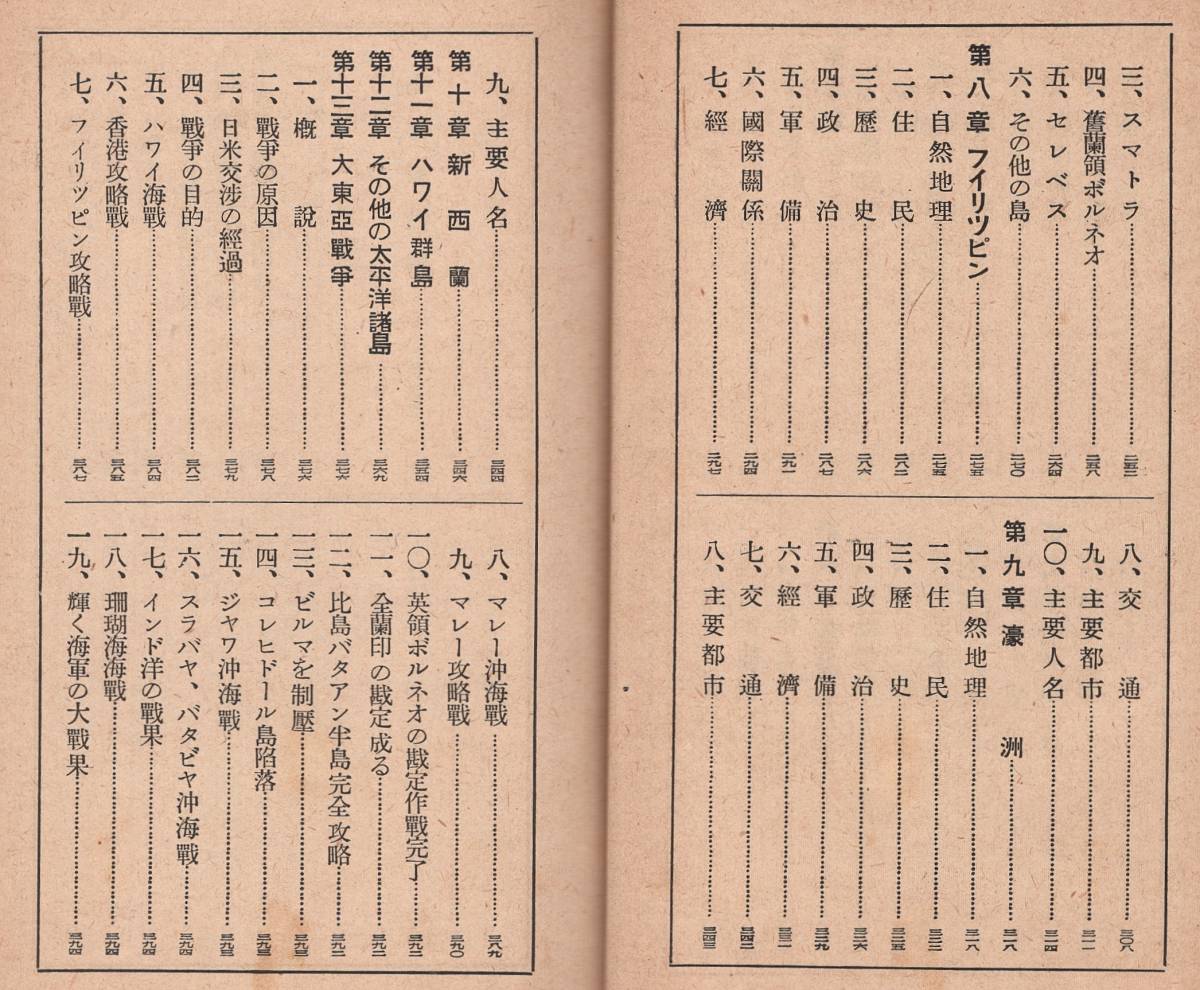 三、スマトラ……二五二
四、舊蘭領ボルネオ……二五八
五、セレベス……二六四
六、その他の島……二七〇
第八章 フイリツピン……二七五
一、自然地理……二七五
二、住民……二八二
三、歷史……二八六
四、政治……二八七
五、軍備……二九一
六、國際關係……二九四
七、經濟……二九七
八、交通……三〇八
九、主要都市……三一一
一〇、主要人名……三一四
第九章 濠洲……三一八
一、自然地理……三一八
二、住民……三二三
三、歷史……三二五
四、政治……三二六
五、軍備……三二九
六、經濟……三三一
七、交通……三四二
八、主要都市……三四三
九、主要人名……三四四
第十章 新西蘭……三四六
第十一章 ハワイ群島……三五四
第十二章 その他の太平洋諸島……三六九
第十三章 大東亞戰爭……三七六
一、槪說……三七六
二、戰爭の原因……三七八
三、日米交涉の經過……三七九
四、戰爭の目的……三八二
五、ハワイ海戰……三八四
六、香港攻略戰……三八五
七、フイリツピン攻略戰……三八七
八、マレー沖海戰……三八九
九、マレー攻略戰……三九〇
一〇、英領ボルネオの戡定作戰完了……三九二
一一、全蘭印の戡定成る……三九二
一二、比島バタアン半島完全攻略……三九二
一三、ビルマを制壓……三九三
一四、コレヒドール島陷落……三九三
一五、ジヤワ沖海戰……三九三
一六、スラバヤ、バタビヤ沖海戰……三九四
一七、インド洋の戰果……三九四
一八、珊瑚海海戰……三九四
一九、輝く海軍の大戰果……三九四